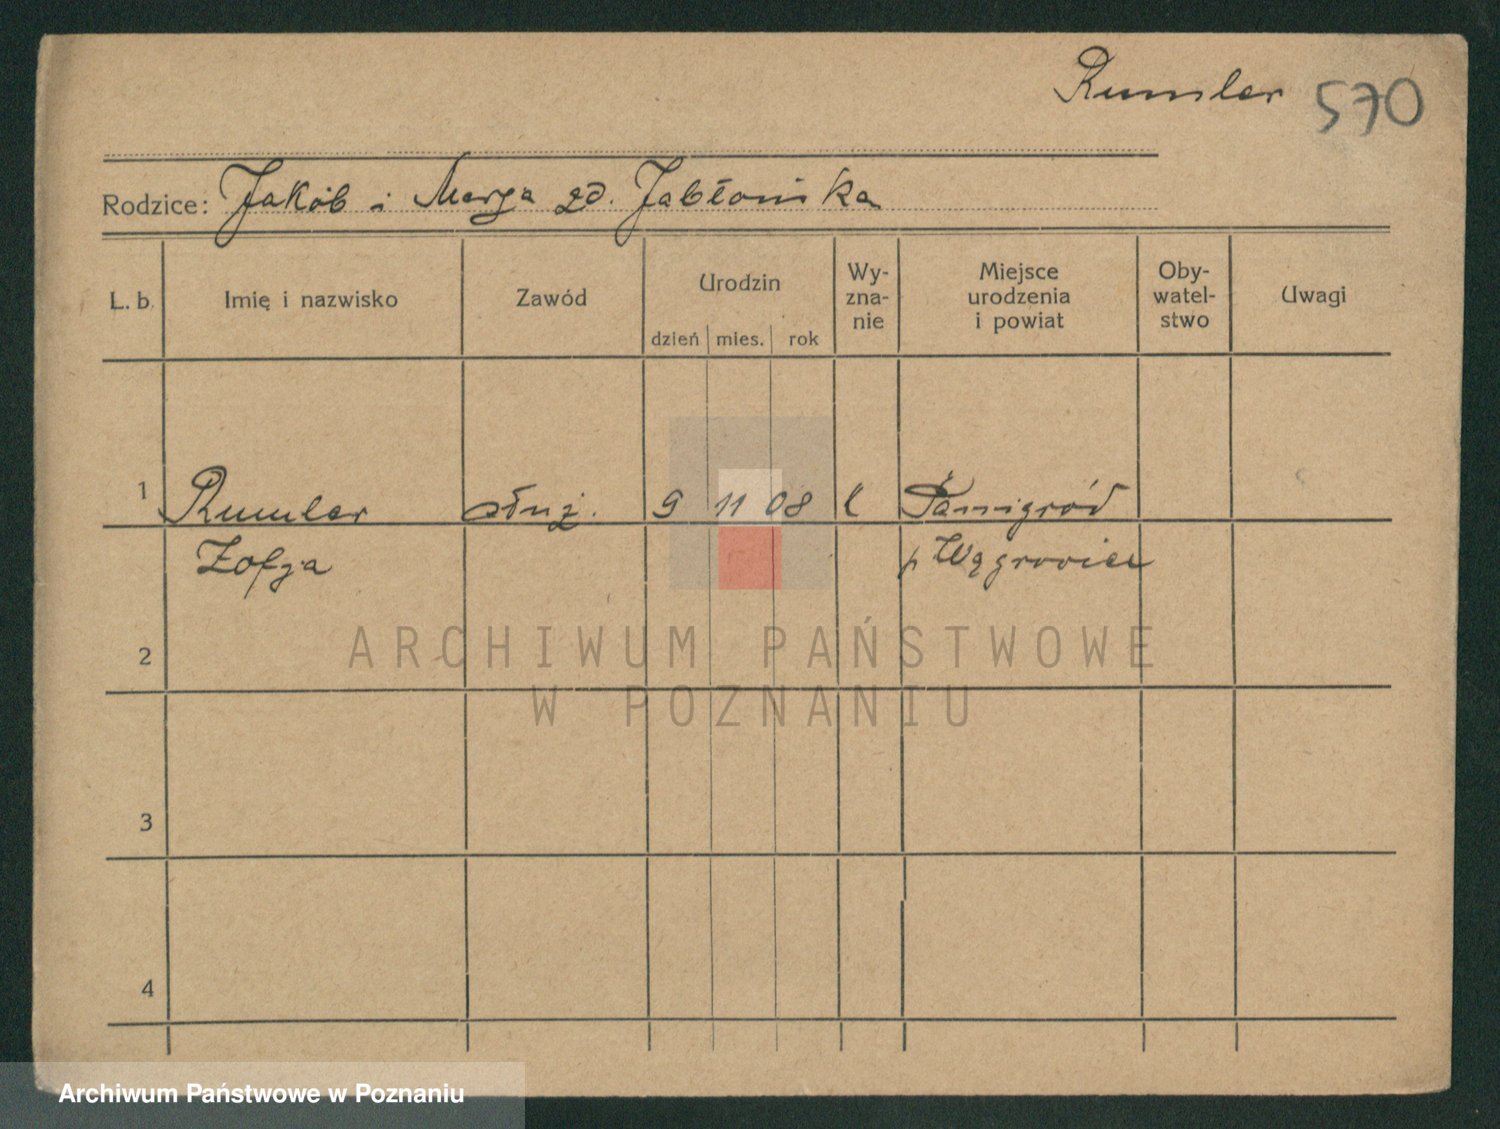 Rumler 570
Rodzice: Jakób i Marja zd. Jabłońska
L. b. Imię i nazwisko Zawód Urodzin dzień mies. rok Wy-zna-nie Miejsce urodzenia i powiat Oby-watel-stwo Uwagi
1 Rumler służ. 9 11 08 k
Zofja p Wągrowiec
2
3
4
ARCHIWUM PAŃSTWOWE
W POZNANIU
Archiwum Państwowe w Poznaniu